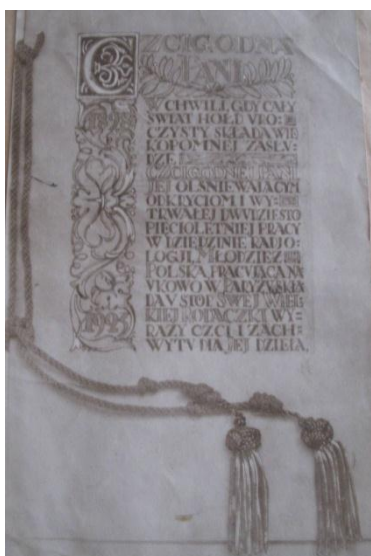 CZCIGODNA
PANI,
W CHWILI, GDY CAŁY
ŚWIAT HOŁD URO-
CZYSTY SKŁADA WIE
KOPOMNEJ ZASŁU-
DZE
CZCIGODNEJ PANI
JEJ OLŚNIEWAJĄCYM
ODKRYCIOM I WY-
TRWAŁEJ DWUDZIESTO
PIĘCIOLETNIEJ PRACY
W DZIEDZINIE RADJO-
LOGJI, MŁODZIEŻ
POLSKA PRACUJĄCA NA
UKOWO W PARYŻU SKŁA
DA U STÓP SWEJ WIEL
KIEJ RODACZKI WY-
RAZY CZCI I ZACH-
WYTU NA JEJ DZIEŁA.